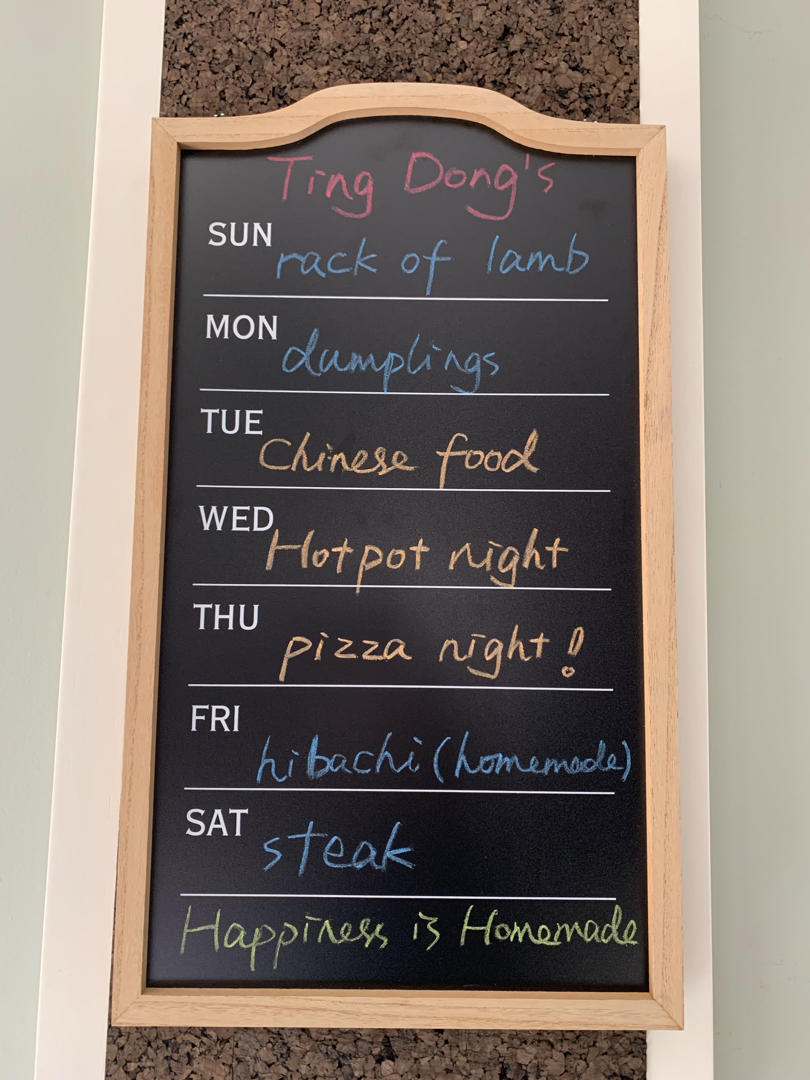 Ting Dong's
SUN
rack of lamb
MON
dumplings
TUE
Chinese food
WED
Hotpot night
THU
pizza night!
FRI
hibachi (homemade)
SAT
steak
Happiness is Homemade